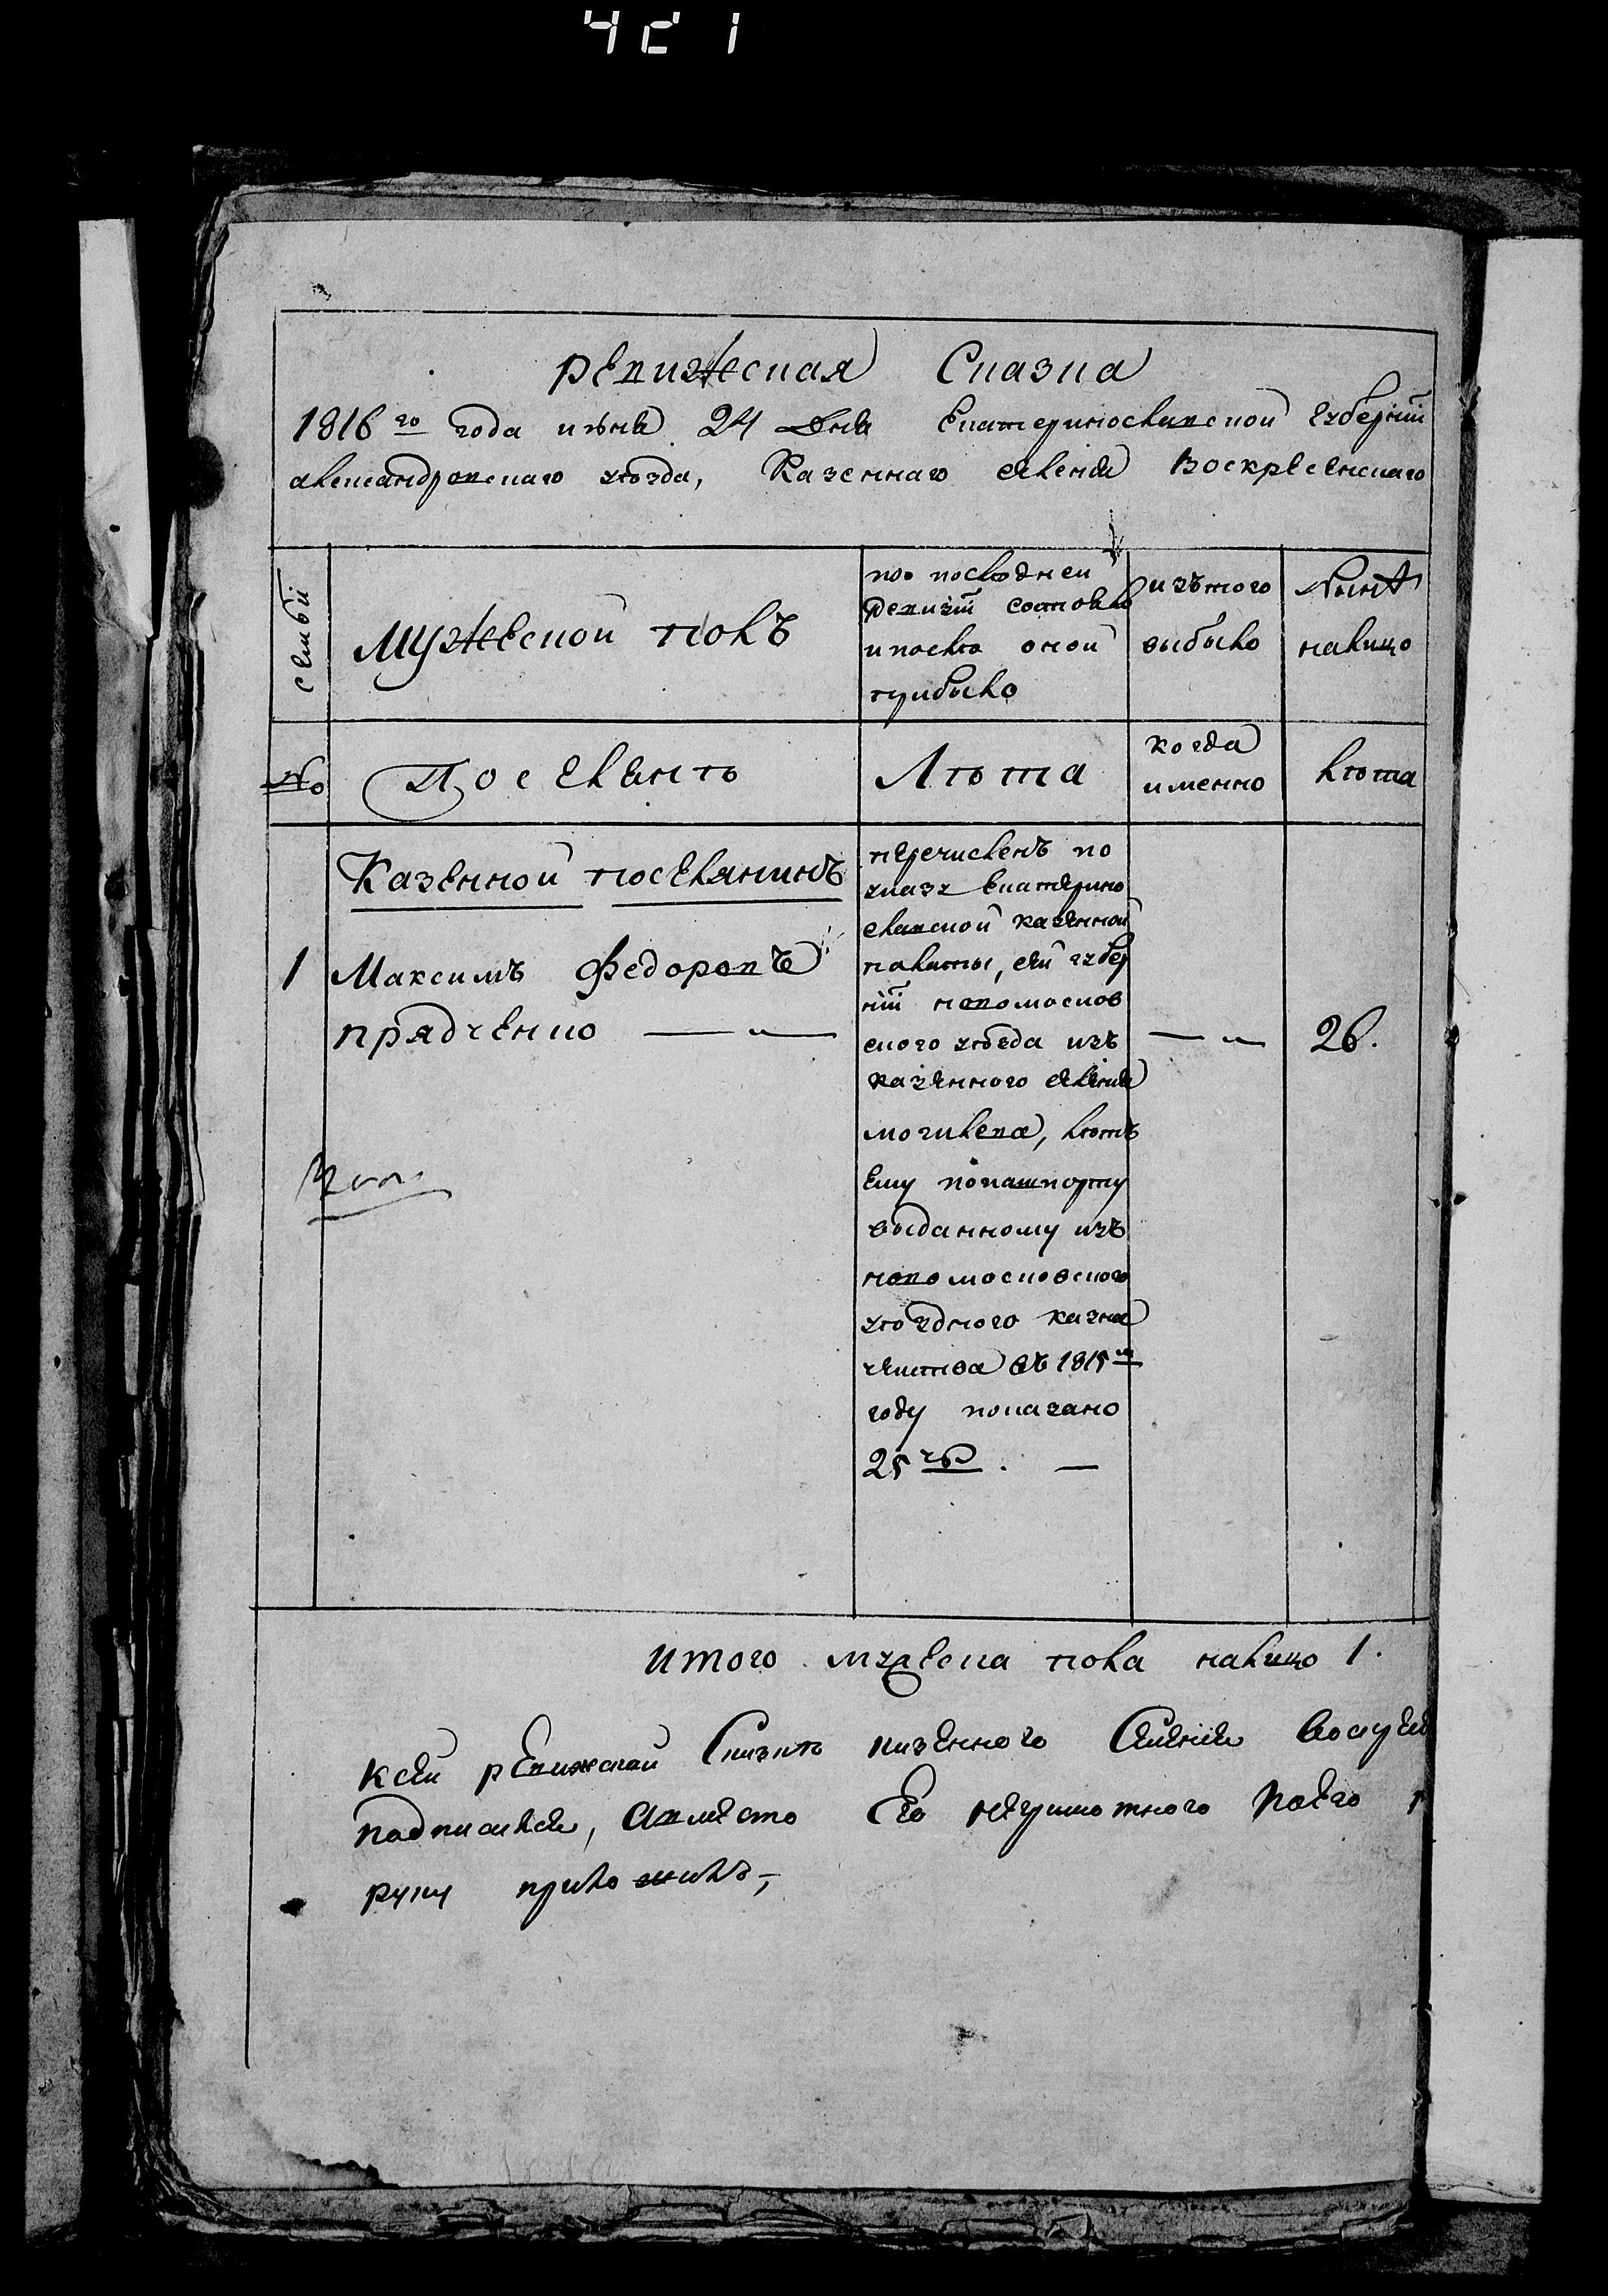 421
Ревижская Сказка
1816го года июня 24 дня Екатеринославской губернии
александровскаго уѣзда, Казеннаго селения Воскресенскаго
семьи
Мужеской полъ
по последней
ревизіи состояло
и после оной
прибыло
изъ того
выбыло
нынѣ
налицо
№
Поселянѣ
Лѣта
когда
именно
лѣта
Казенной поселянинъ
1
Максимъ Федоровъ
прядченко
перечисленъ по
указу Екатерино
славской казенной
палаты, сей губер
нии новомосков
ского уѣзда изъ
казенного селения
могилева, лѣтъ
ему по пашпорту
выданному изъ
новомосковского
уѣздного казна
чейства въ 1815м
году показано
25ть.
26.
итого мужеска пола налицо 1.
К сей ревижской Сказкѣ казенного Селения
подписался, а вместо Его неграмотного
руку приложилъ,